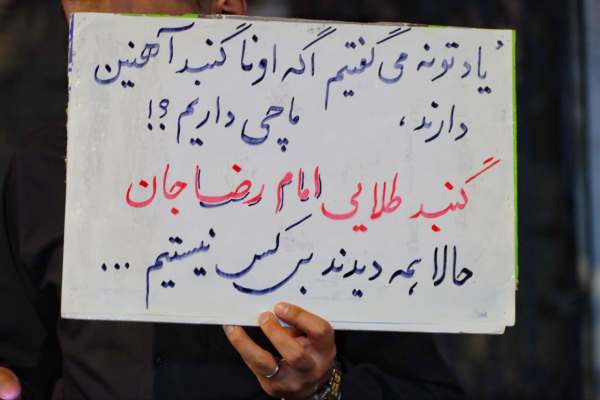 یادتونه می گفتیم اگه اونا گنبد آهنین
دارند، ما چی داریم؟!
گنبد طلایی امام رضا جان
حالا همه دیدند بی کس نیستیم ...